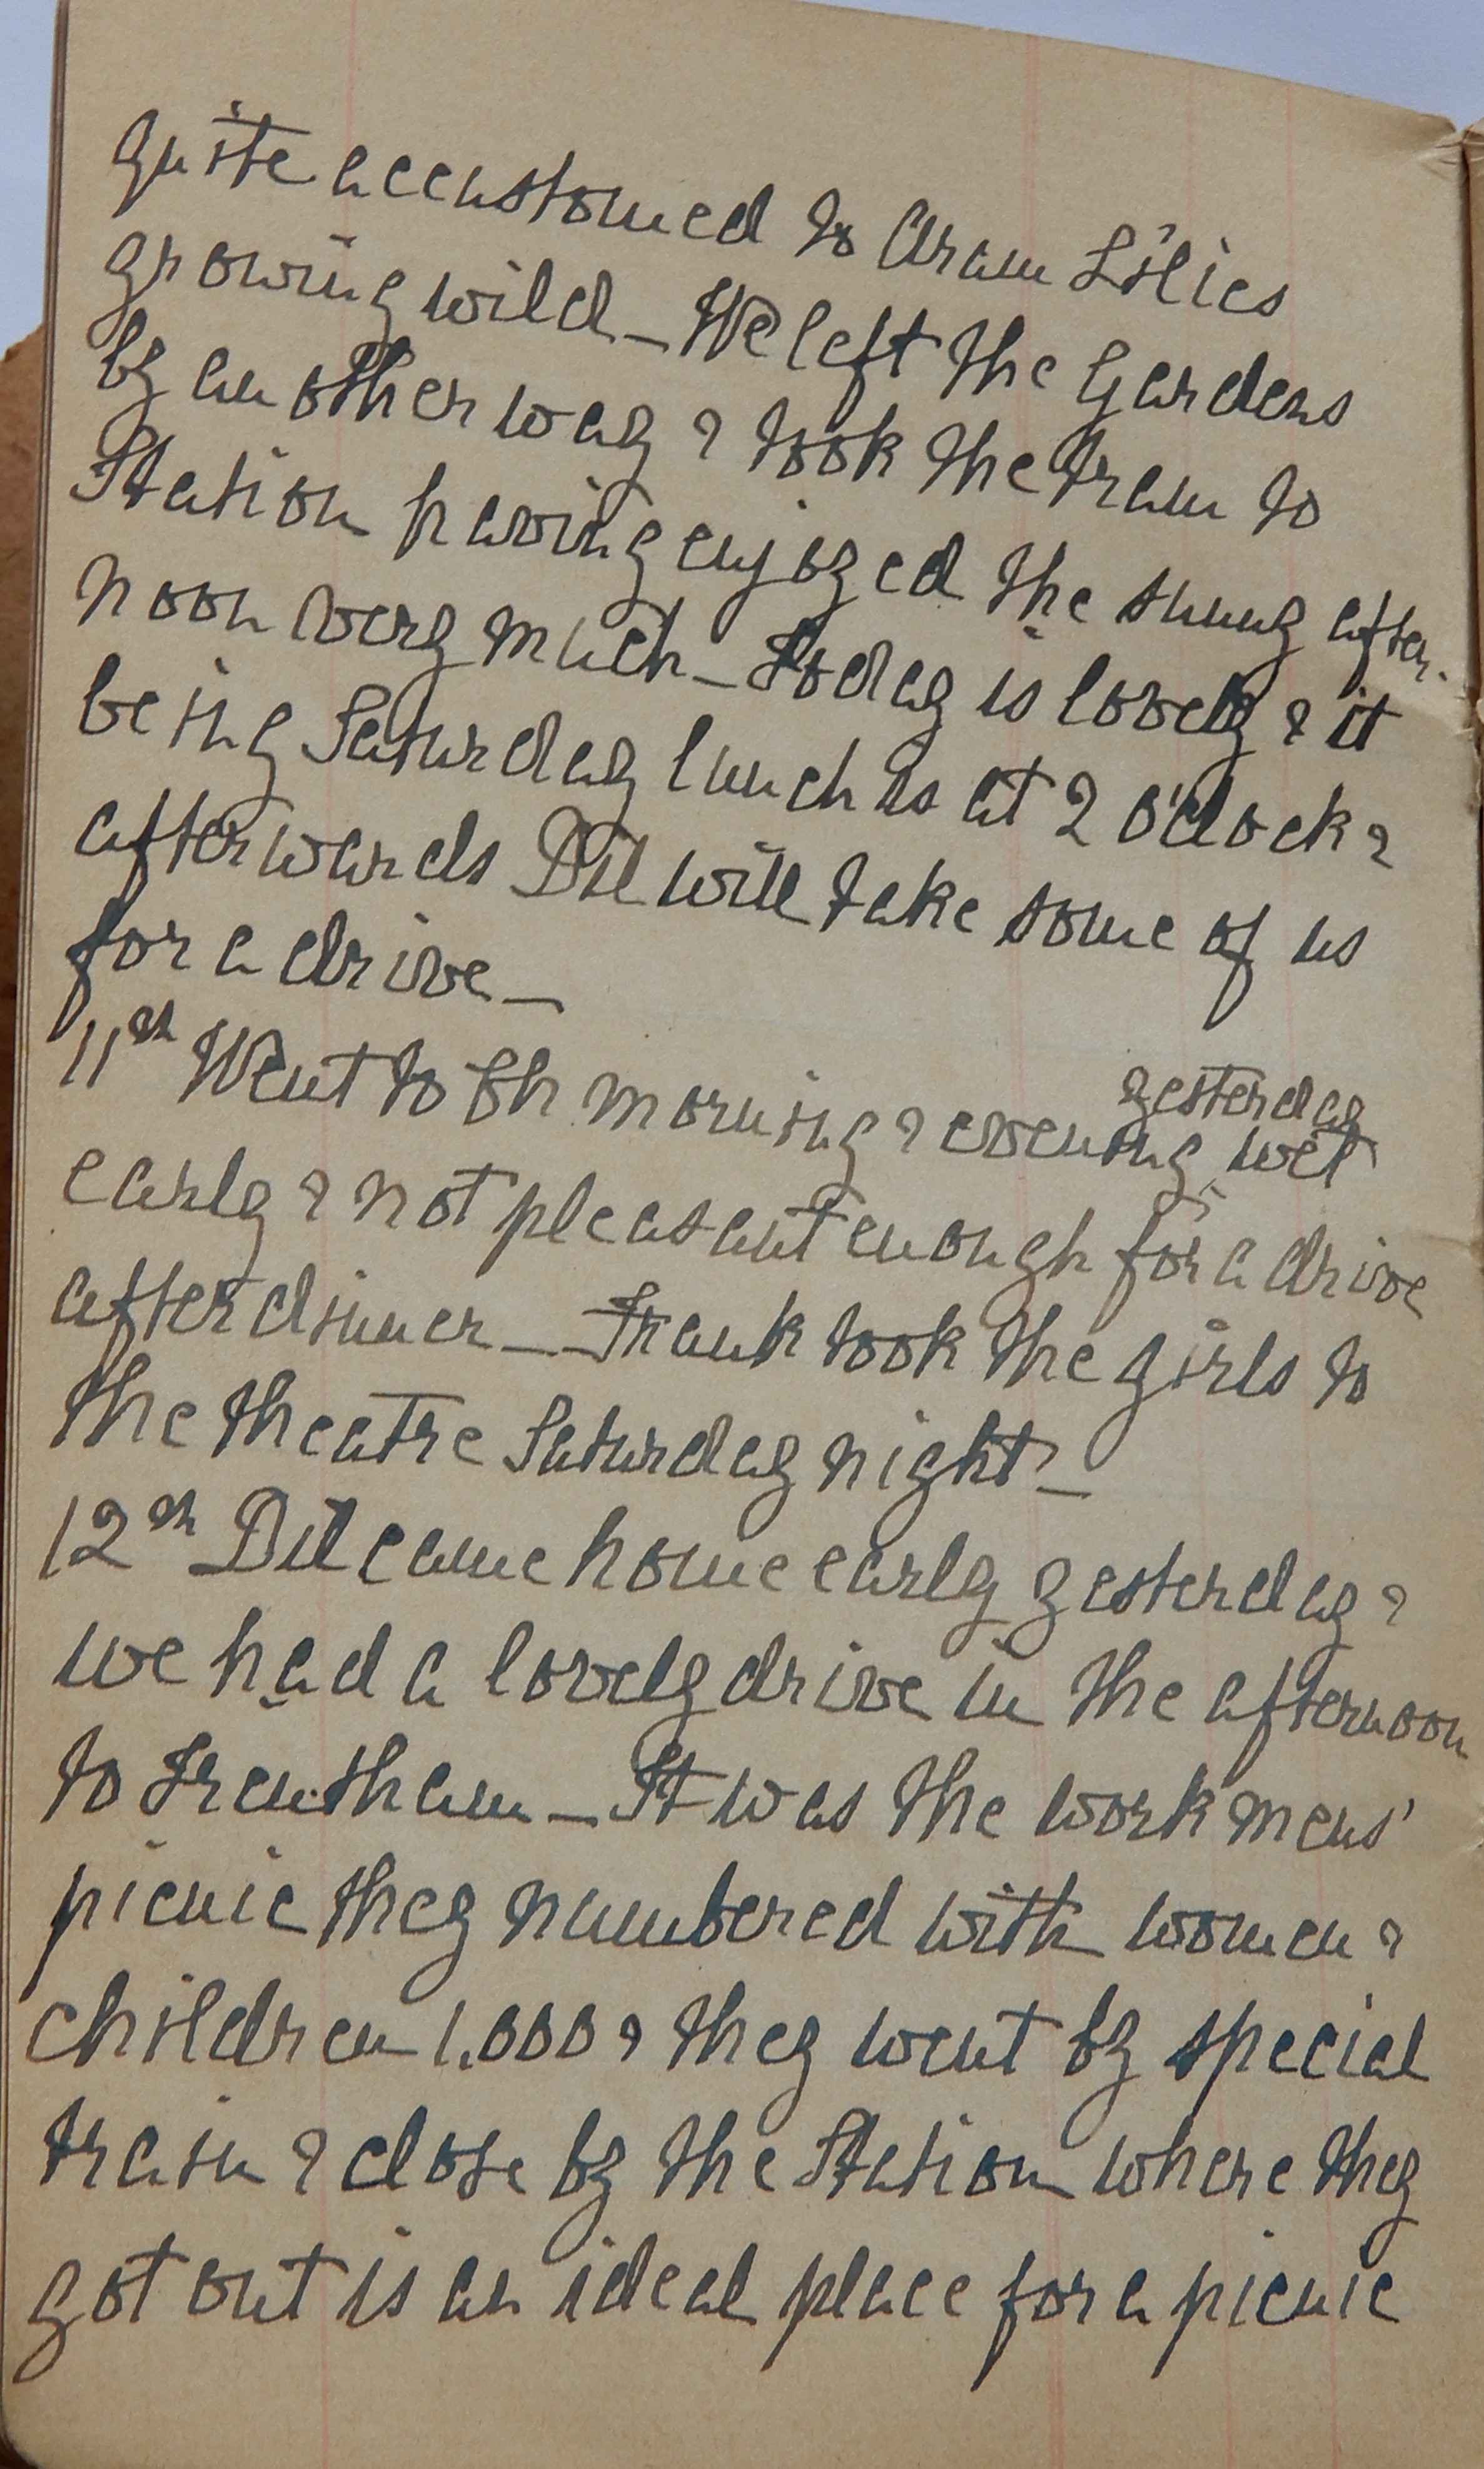 quite accustomed to Arum Lilies
growing wild – We left the Gardens
by another way & took the tram to
Station having enjoyed the sunny after-
noon very much – Today is lovely & it
being Saturday lunch is at 2 o'clock &
afterwards Bil will take some of us
for a drive –
11th Went to Ch morning & evening yesterday wet
early & not pleasant enough for a drive
after dinner – Frank took the girls to
the theatre Saturday night –
12th Bil came home early yesterday &
we had a lovely drive in the afternoon
to Trentham – It was the workmens'
picnic they numbered with women &
children 1.000 & they went by special
train & close by the Station where they
got out is an ideal place for a picnic